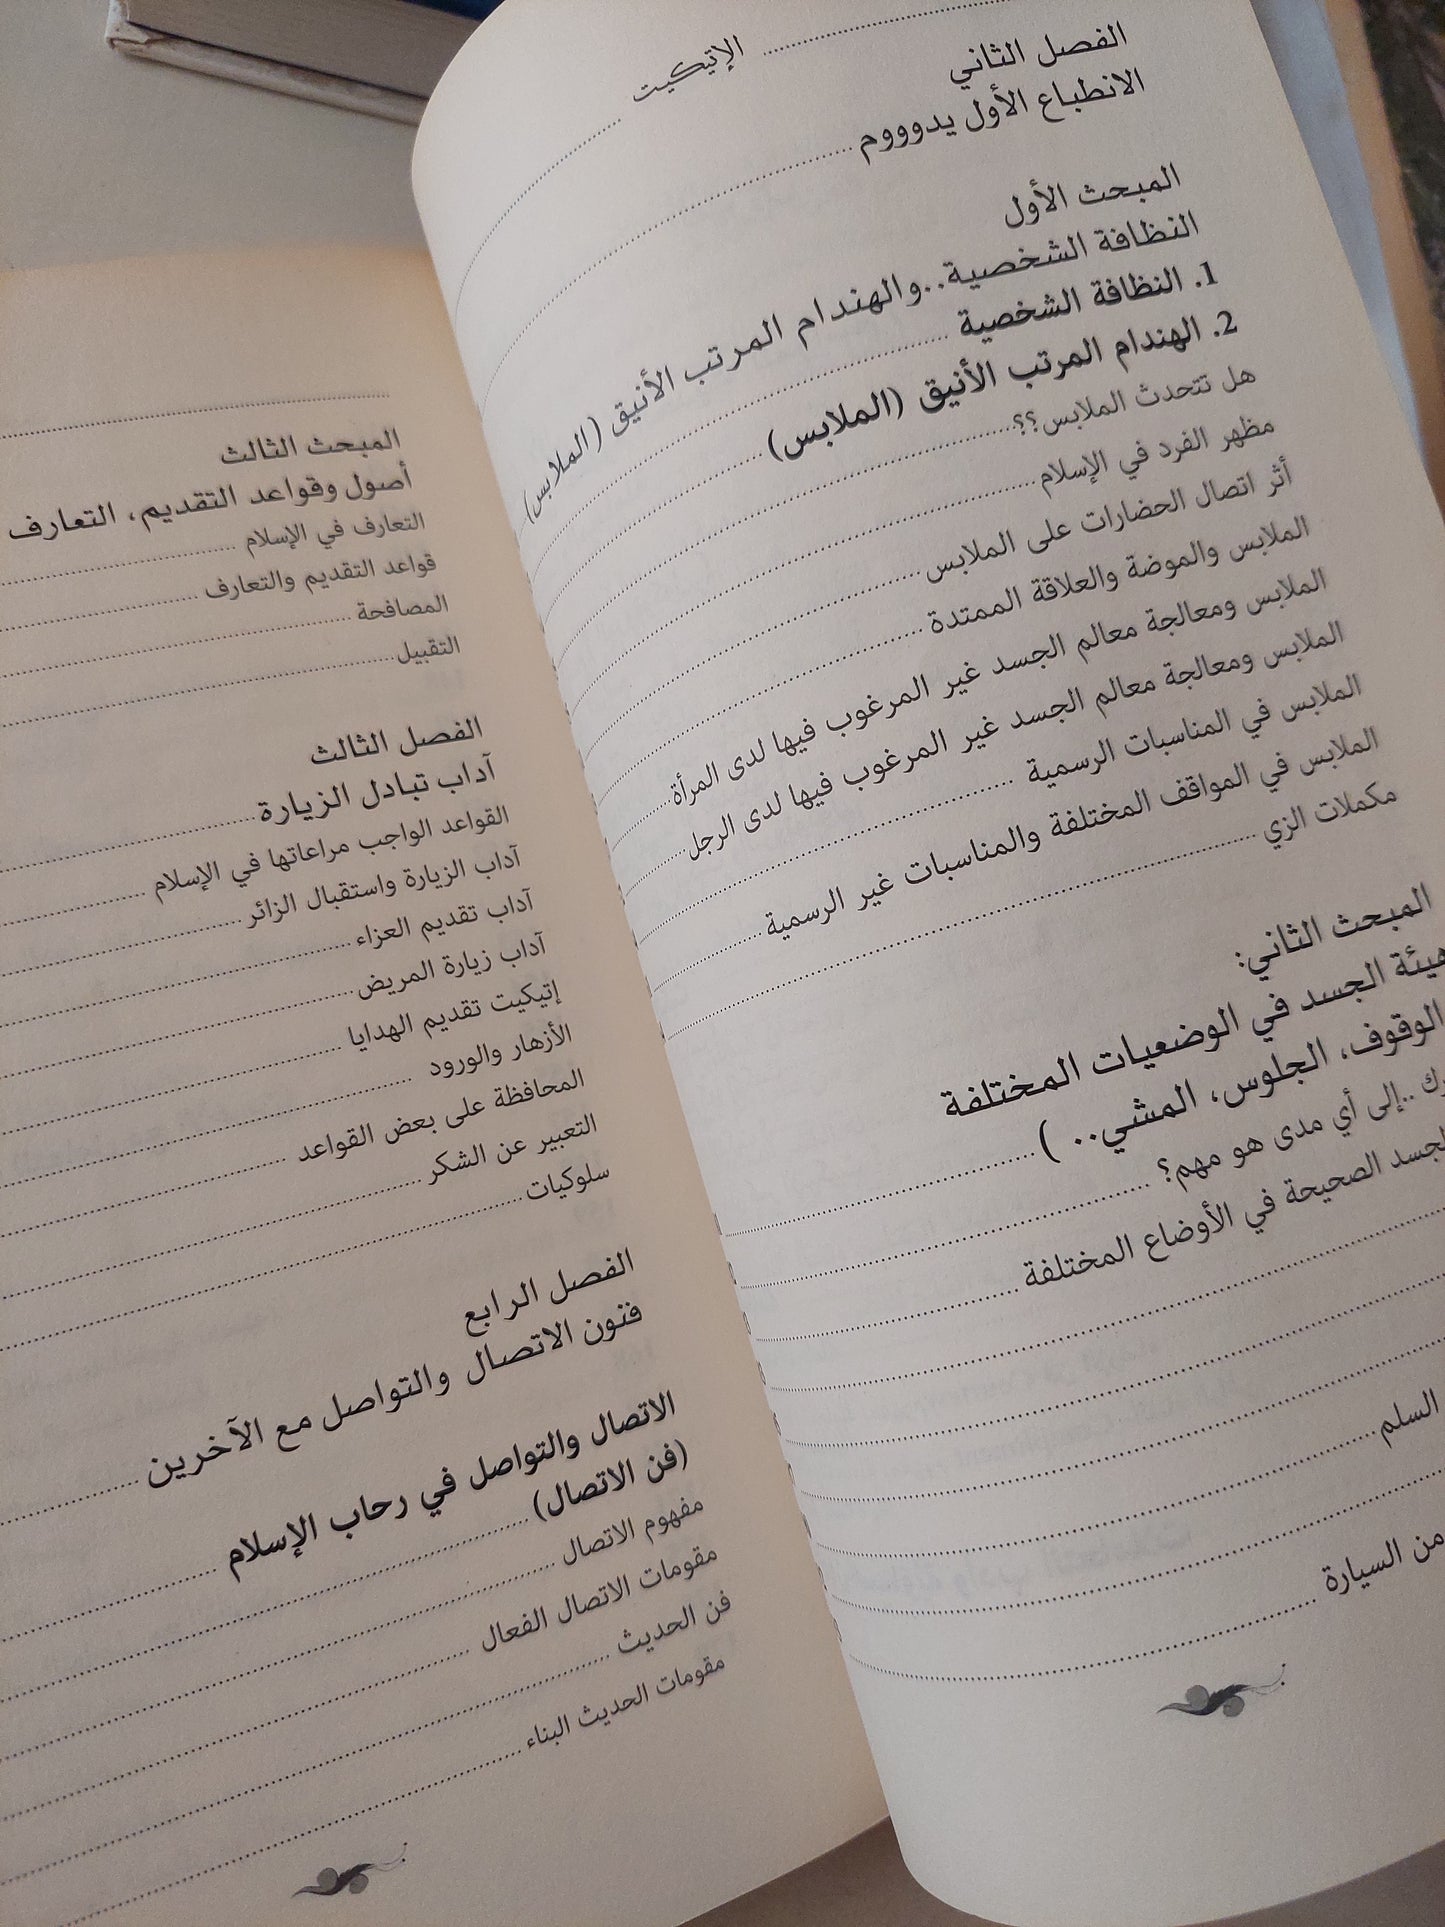 الإتيكيت
الفصل الثاني
الانطباع الأول يدوووم
المبحث الأول
النظافة الشخصية..والهندام المرتب الأنيق (الملابس)
1. النظافة الشخصية
2. الهندام المرتب الأنيق (الملابس)
هل تتحدث الملابس؟؟
مظهر الفرد في الإسلام
أثر اتصال الحضارات على الملابس
الملابس والموضة والعلاقة الممتدة
الملابس ومعالجة معالم الجسد غير المرغوب فيها لدى المرأة
الملابس ومعالجة معالم الجسد غير المرغوب فيها لدى الرجل
الملابس في المناسبات الرسمية
الملابس في المواقف المختلفة والمناسبات غير الرسمية
مكملات الزي
المبحث الثاني:
هيئة الجسد في الوضعيات المختلفة
الوقوف، الجلوس، المشي.. )
..إلى أي مدى هو مهم؟
لجسد الصحيحة في الأوضاع المختلفة
السلم
من السيارة
المبحث الثالث
أصول وقواعد التقديم، التعارف
التعارف في الإسلام
قواعد التقديم والتعارف
المصافحة
التقبيل
الفصل الثالث
آداب تبادل الزيارة
القواعد الواجب مراعاتها في الإسلام
آداب الزيارة واستقبال الزائر
آداب تقديم العزاء
آداب زيارة المريض
إتيكيت تقديم الهدايا
الأزهار والورود
المحافظة على بعض القواعد
التعبير عن الشكر
سلوكيات
الفصل الرابع
فنون الاتصال والتواصل مع الآخرين
الاتصال والتواصل في رحاب الإسلام
(فن الاتصال)
مفهوم الاتصال
مقومات الاتصال الفعال
فن الحديث
مقومات الحديث البناء